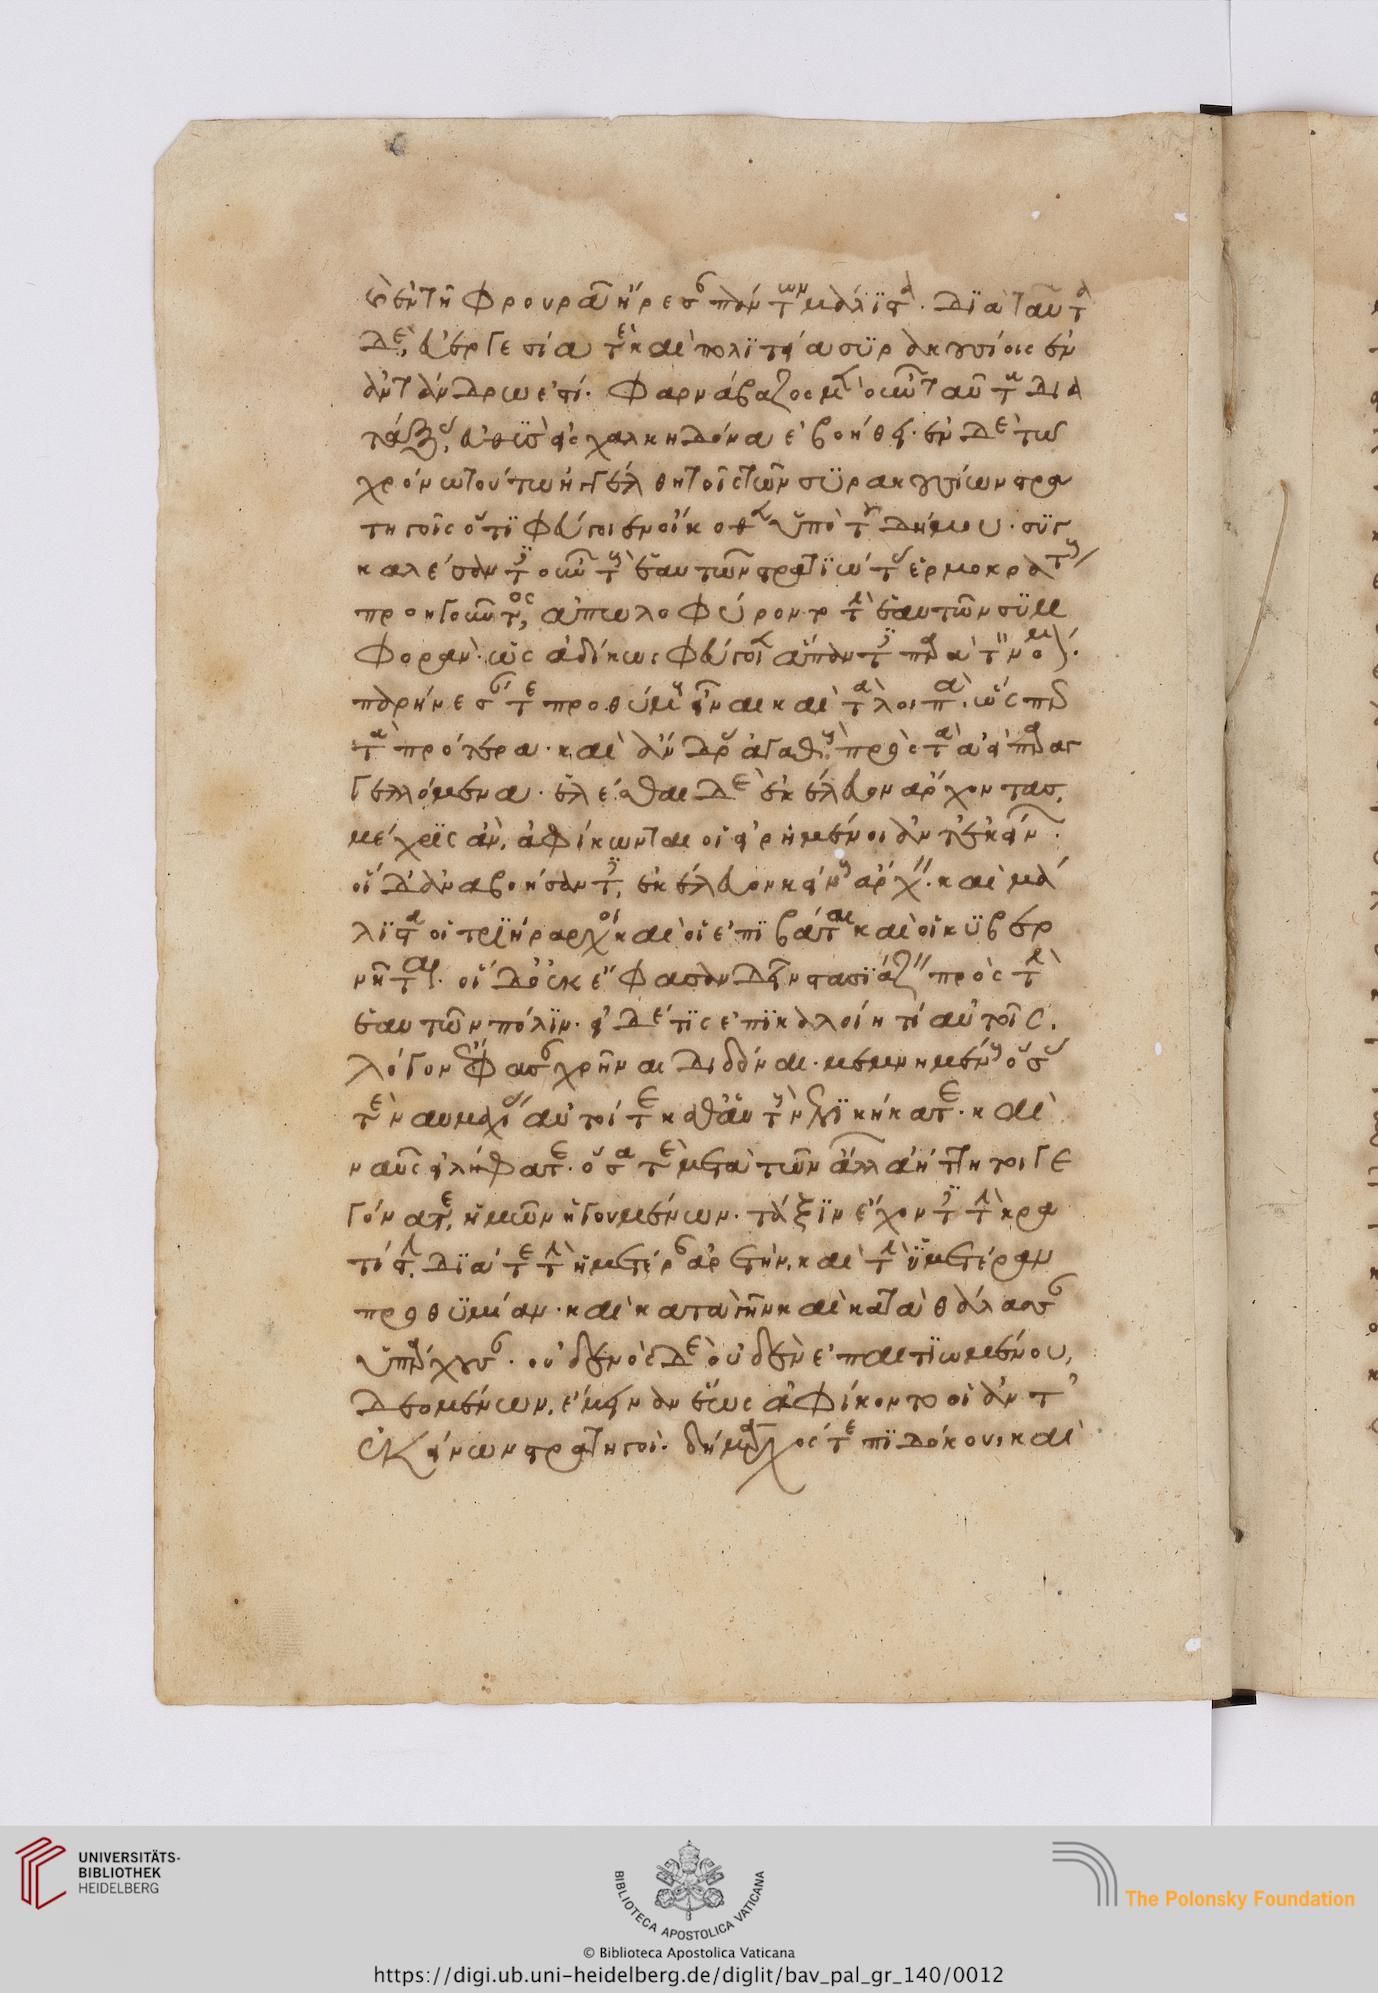 καὶ ἐν τῆ φρουρᾶ ἤρεσαν πάντων μάλιστα. διὰ ταῦτα
δὲ, εὐεργεσία τὲ καὶ πολιτεία συρακουσίοις ἐν
ἀντάνδρω ἐστί. φαρνάβαζος μὲν οὖν ταῦτα δια
τάξας, εὐθὺς εἰς χαλκηδόνα ἐβοήθει. ἐν δὲ τῶ
χρόνω τούτω ἠγγέλθη τοῖς τῶν συρακουσίων στρα
τηγοῖς ὅτι φεύγοιεν οἴκοθεν ὑπὸ τοῦ δήμου. συγ
καλέσαντες οὖν τοὺς ἑαυτῶν στρατιώτας ἑρμοκράτους
προηγοῦντος, ἀπωλοφύροντο τὴν ἑαυτῶν συμ
φοράν. ὡς ἀδίκως φεύγοιεν ἅπαντες παρὰ τὸν νόμον.
παρήνεσάν τε προθύμους εἶναι καὶ τὰ λοιπὰ. ὥσπερ
τὰ πρότερα. καὶ ἄνδρας ἀγαθοὺς πρὸς τὰ ἀεὶ παραγ
γελλόμενα. ἑλέσθαι δὲ ἐκέλευον ἄρχοντας,
μέχρις ἂν, ἀφίκωνται οἱ εἰρημένοι ἀντ' ἐκείνων.
οἱ δ' ἀναβοήσαντες, ἐκέλευον κείνους ἄρχειν. καὶ μά
λιστα οἱ τριήραρχοι καὶ οἱ ἐπιβάται καὶ οἱ κυβερ
νῆται. οἱ δ' οὐκ ἔφασαν δεῖν στασιάζειν πρὸς τὴν
ἑαυτῶν πόλιν. εἰ δέ τις ἐπικαλοίη τί αὐτοῖς.
λόγον ἔφασαν χρῆναι διδόναι. μεμνημένους ὅσας
τὲ ναυμαχίας αὐτοί τε καθ' αὑτοὺς νενικήκατε. καὶ
ναῦς εἰλήφατε. ὅσα τὲ μετὰ τῶν ἄλλων ἀήττητοι γε
γόνατε, ἡμῶν ἡγουμένων. τάξιν ἔχοντες τὴν κρα
τίστην. διά τε τὴν ἡμετέραν ἀρετὴν, καὶ τὴν ὑμετέραν
προθυμίαν. καὶ κατὰ γῆν καὶ κατὰ θάλασσαν
ὑπάρχουσαν. οὐδενὸς δὲ οὐδὲν ἐπαιτιωμένου,
δεομένων, ἔμειναν ἕως ἀφίκοντο οἱ ἀντ'
ἐκείνων στρατηγοί. δήμαρχός τε πιδόκου, καὶ
UNIVERSITÄTS-
BIBLIOTHEK
HEIDELBERG
BIBLIOTECA APOSTOLICA VATICANA
© Biblioteca Apostolica Vaticana
The Polonsky Foundation
https://digi.ub.uni-heidelberg.de/diglit/bav_pal_gr_140/0012